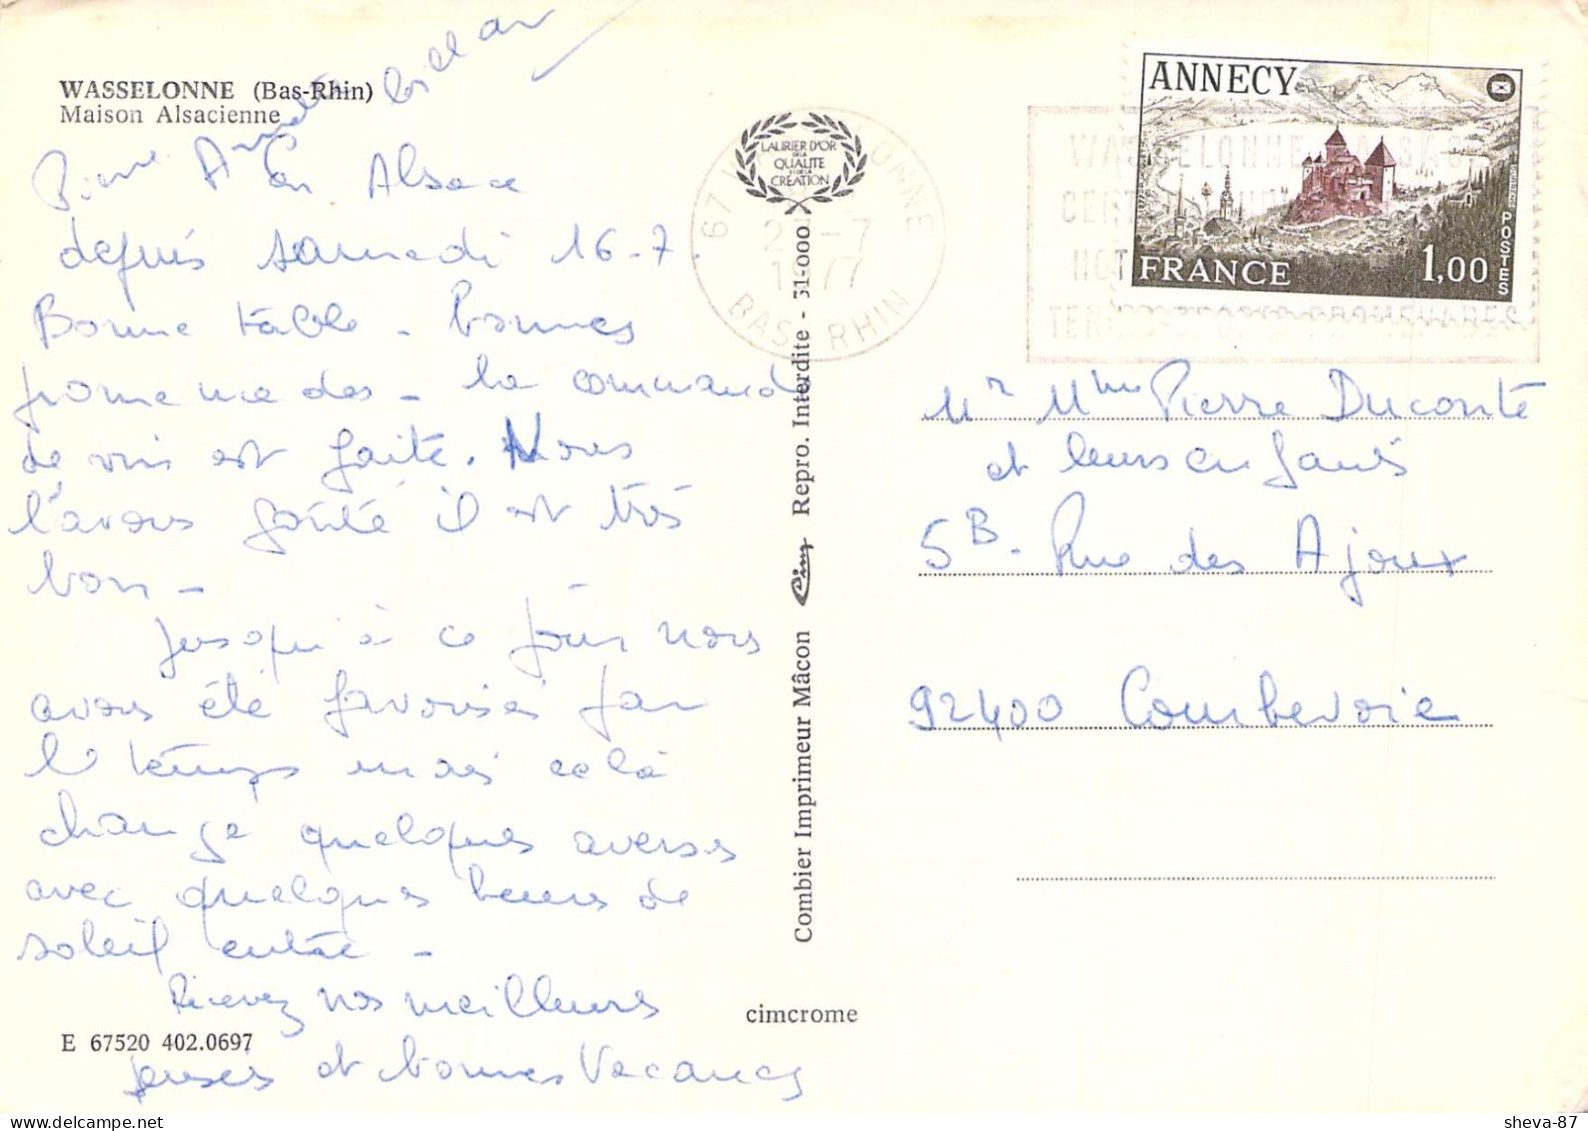 WASSELONNE (Bas-Rhin)
Maison Alsacienne
En Alsace
depuis samedi 16-7.
Bonne table - bonnes
promenades - la command
de vin est faite. Nous
l'avons goûté il est très
bon -
Jusqu'à ce jour nous
avons été favorisés par
le temps mais celà
change quelques averses
avec quelques heures de
soleil entre -
Recevez nos meilleures
pensées et bonnes Vacances
Pierre
E 67520 402.0697
cimcrome
Combier Imprimeur Mâcon Cim Repro. Interdite - 31-000
LAURIER D'OR
DE LA
QUALITE
ET DE LA
CREATION
67 WASSELONNE
-7
1977
BAS-RHIN
ANNECY
FRANCE
1,00
POSTES
WASSELONNE ALSACE
Mr Mme Pierre Duconté
et leurs enfants
5B - Rue des Ajoux
92400 Courbevoie
sheva-87